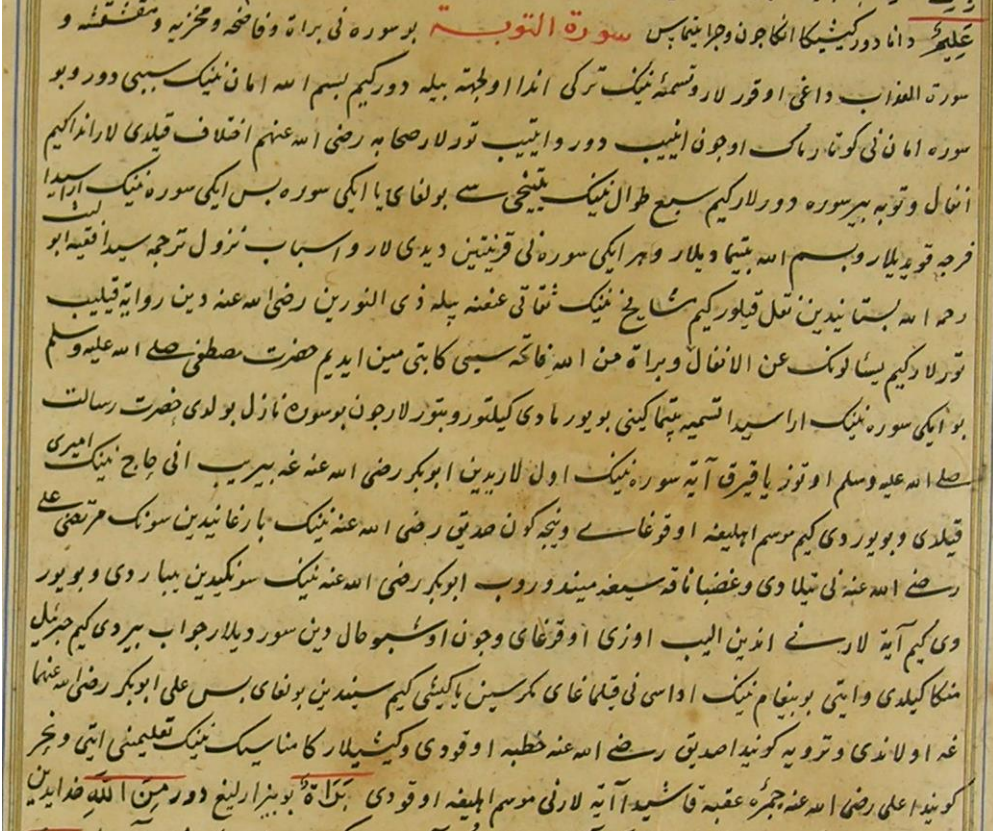 عَلِيمٌ دانا دور كيشيكا انكا جون وچرا يتماس سورة التوبــة بو سوره نى براة وفاضحه ومخزيه ومقشقشه و
سورة العذاب داغى اوقور لار وتسميه نينك تركى اندا اولجهته بيله دور كيم بسم الله امان نينك سببى دور وبو
سوره امان نى كوتارماك اوجون اينيب دور وايتيب تورلار صحابه رضى الله عنهم اختلاف قيلدى لار انداكيم
انفال وتوبه بير سوره دورلار كيم سبع طوال نينك يتينچى سے بولغاى يا ايكى سوره بس ايكى سوره نينك اراسيدا
فرجه قويديلار وبسم الله بيتيماديلار وهر ايكى سوره نى قرينتين ديدى لار واسباب نزول ترجمه سيدا فقيه ابو ليث
رحمه الله بستانيدين نقل قيلور كيم مشايخ نينك ثقاتى عنعنه بيله ذى النورين رضى الله عنه دين رواية قيليب
تورلار كيم يسئالونك عن الانفال وبراة من الله فاتحه سيى كاتبى مين ايديم حضرت مصطفى صلے الله عليه وسلم
بو ايكى سوره نينك اراسيدا تسميه بيتيماكينى بويورمادى كيلتوروبتورلار جون بو سوره نازل بولدى حضرت رسالت
صلے الله عليه وسلم اوتوز يا قيرق آية سوره نينك اول لاريدين ابوبكر رضى الله عنه غه بيريب انى حاج نينك اميرى
قيلدى وبويوردى كيم موسم اهليغه اوقوغاے ونيچه كون صديق رضى الله عنه نينك بارغانيدين سونك مرتضى على
رضے الله عنه نى تيلادى وغضبا ناقه سيغه ميندوروب ابوبكر رضى الله عنه نينك سونكيدين ييباردى وبويور
دى كيم آية لارنے اندين اليب اوزى اوقوغاى وجون اوشبو حال دين سورديلار جواب بيردى كيم جبرئيل
منكا كيلدى وايتى بو پيغام نينك اداسى نى قيلماغاى مكر سين يا كيشى كيم سيندين بولغاى بس على ابوبكر رضى الله عنهما
غه اولاندى وترويه كونيدا صديق رضے الله عنه خطبه اوقودى وكيشيلار كا مناسك نينك تعليمنى ايتى ونحر
كونيدا على رضى الله عنه جمره عقبه قاشيدا آية لارنى موسم اهليغه اوقودى بَرَاةٌ بو بيزارليغ دور مِنَ اللَّهِ خدايدين